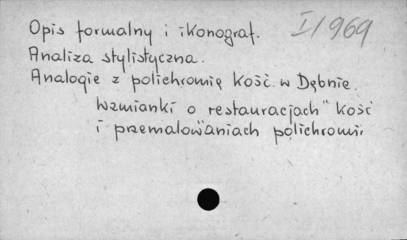 Opis formalny i ikonograf. I/1969
Analiza stylistyczna.
Analogie z polichromią kość. w Dębnie.
Wzmianki o restauracjach kość
i przemalowaniach polichromii